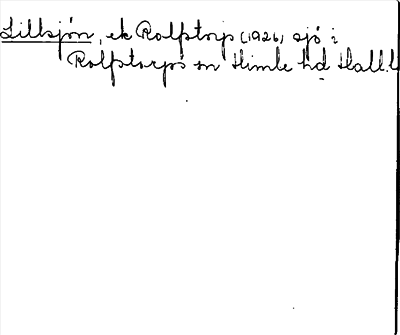 Lillsjön, ek Rolfstorp (1926) sjö i
Rolfstorps sn Himle hd Hall. l